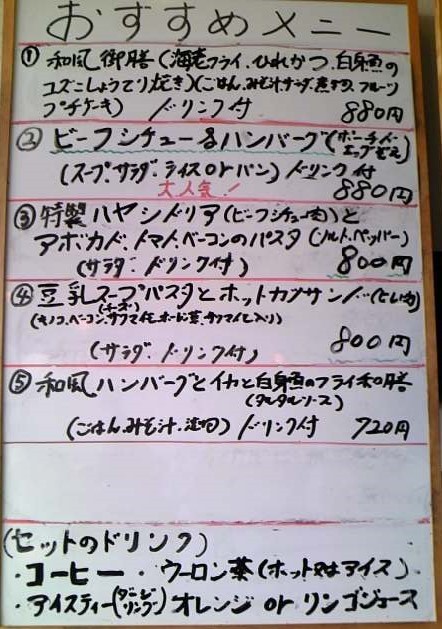 おすすめメニュー
① 和風御膳(海老フライ、ひれかつ、白身魚の
ユズこしょうてり焼き)(ごはん、みそ汁、サラダ、煮もの、フルーツ
プチケーキ) ドリンク付 880円
② ビーフシチュー&ハンバーグ(ポーチド・
エッグ添え)
(スープ、サラダ、ライス or パン) ドリンク付
大人気! 880円
③ 特製ハヤシドリア(ビーフシチュー肉)と
アボカド、トマト、ベーコンのパスタ(ソルト、ペッパー)
(サラダ、ドリンク付) 800円
④ 豆乳スープパスタとホットカツサンド(ヒレカツ)
(チーズ)
(キノコ、ベーコン、サツマイモ、
(サラダ、ドリンク付) 800円
⑤ 和風ハンバーグとイカと白身魚のフライ和膳
(タルタルソース)
(ごはん、みそ汁、漬物) ドリンク付 720円
(セットのドリンク)
・コーヒー ・ウーロン茶(ホット又はアイス)
・アイスティー(ダージリン) オレンジ or リンゴジュース